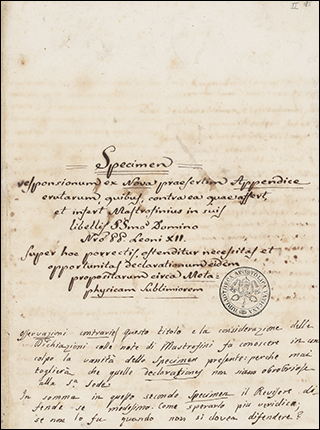 II
Specimen
responsionum ex Nova praesertim Appendice
erutarum, quibus, contra ea quae affert,
et infert Mastrofinius in suis
libellis SSmo Domino
Nro PP Leoni XII.
Super hac porrectis, ostenditur necessitas et
opportunitas declarationum eidem
propositarum circa Meta=
physicam Sublimiorem
BIBLIOTHECA APOSTOLICA VATICANA
Osservazioni contrarie questo titolo e la considerazione delle
Dichiarazioni alle note di Mastrofini fa conoscere in un
colpo la vanità dello Specimen presente: perche mai
toglierà che quelle Declarationes non siano obrobriose
alla Sa Sede
In somma in questo secondo Specimen il Revisore di=
fende se medesimo. Come sperarlo piu veridico,
se non lo fu quando non si dovea difendere?